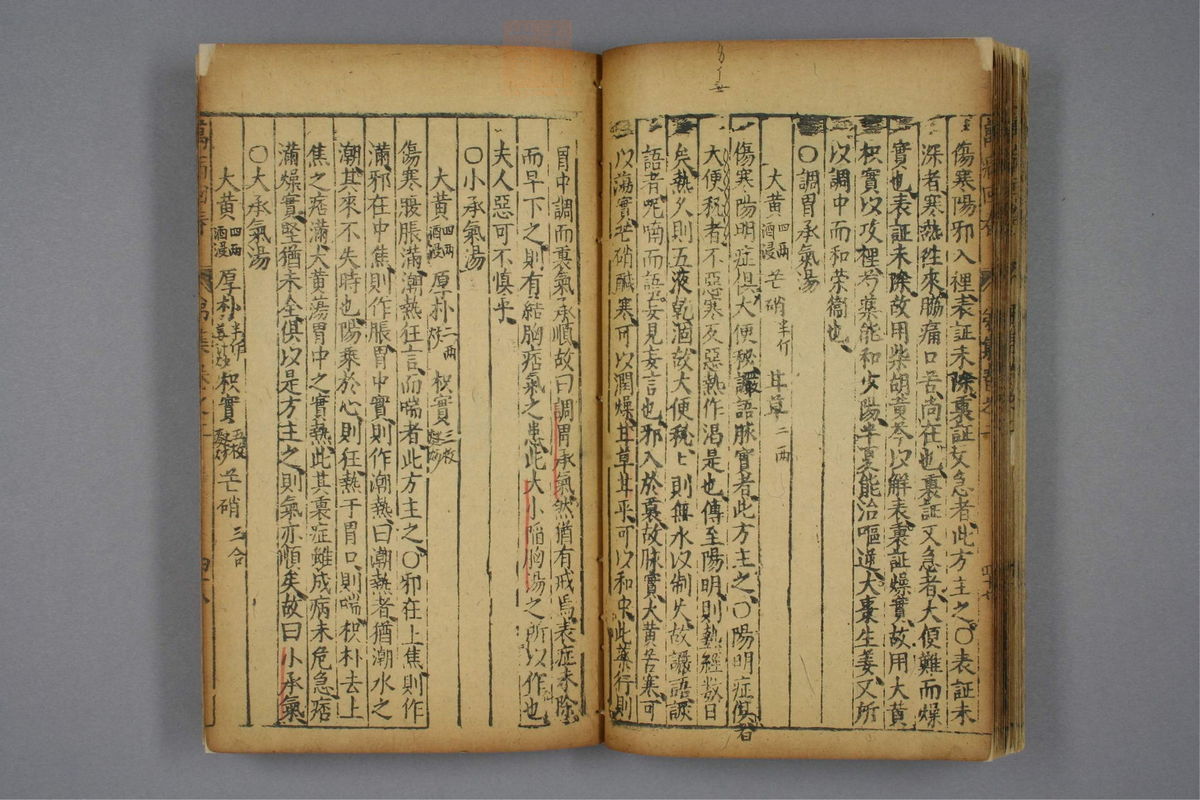 傷寒陽邪入裡表証未除裏証又急者此方主之〇表証未
深者寒熱往來脇痛口苦尚在也裏証又急者大便難而燥
實也表証未除故用柴胡黄芩以解表裏証燥實故用大黄
枳實以攻裡芍藥能和少陽半夏能治嘔逆大棗生姜又所
以調中而和榮衛也
〇調胃承氣湯
大黄四兩酒浸 芒硝半斤 甘草二兩
傷寒陽明症俱大便秘讝語脉實者此方主之〇陽明症俱者
大便秘者不惡寒反惡熱作渴是也傳至陽明則熱經数日
矣熱久則五液乾涸故大便秘上則無水以制火故讝語讝
語者呢喃而語妄見妄言也邪入於裏故脉實大黄苦寒可
以蕩實芒硝鹹寒可以潤燥甘草甘平可以和中此藥行則
胃中調而裏氣承順故曰調胃承氣然猶有戒焉表症未除
而早下之則有結胸痞氣之患此大小陷胸湯之所以作也
夫人惡可不慎乎
〇小承氣湯
大黄四兩酒浸 厚朴二兩 枳實三枚
傷寒腹脹滿潮熱狂言而喘者此方主之〇邪在上焦則作
滿邪在中焦則作脹胃中實則作潮熱曰潮熱者猶潮水之
潮其來不失時也陽乘於心則狂熱于胃口則喘枳朴去上
焦之痞滿大黄蕩胃中之實熱此其裏症雖成病未危急痞
滿燥實堅猶未全俱以是方主之則氣亦順矣故曰小承氣
〇大承氣湯
大黄四兩酒浸 厚朴半斤 枳實五枚 芒硝三合